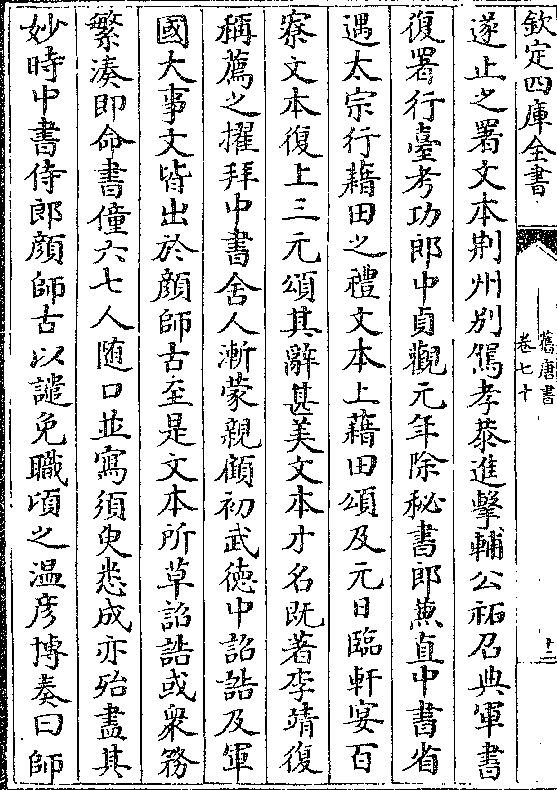 欽定四庫全書
舊唐書
卷七十
十二
遂止之署文本荆州别駕孝恭進擊輔公祏召典軍書
復署行臺考功郎中貞觀元年除秘書郎兼直中書省
遇太宗行藉田之禮文本上藉田頌及元日臨軒宴百
寮文本復上三元頌其辭甚美文本才名既著李靖復
稱薦之擢拜中書舍人漸蒙親顧初武德中詔誥及軍
國大事文皆出於顔師古至是文本所草詔誥或衆務
繁湊即命書僮六七人随口並寫須臾悉成亦殆盡其
妙時中書侍郎顔師古以譴免職頃之温彦博奏曰師